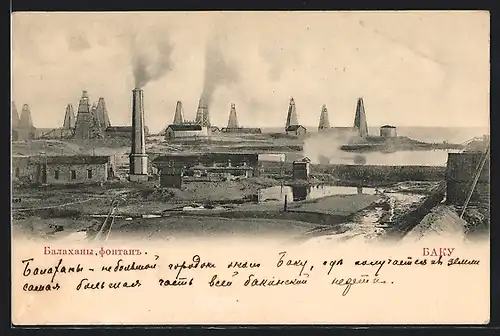 Балаханы, фонтанъ.
БАКУ
Балаханы - небольшой городокъ около Баку, гдѣ получается изъ земли
самая большая часть всей бакинской нефти.